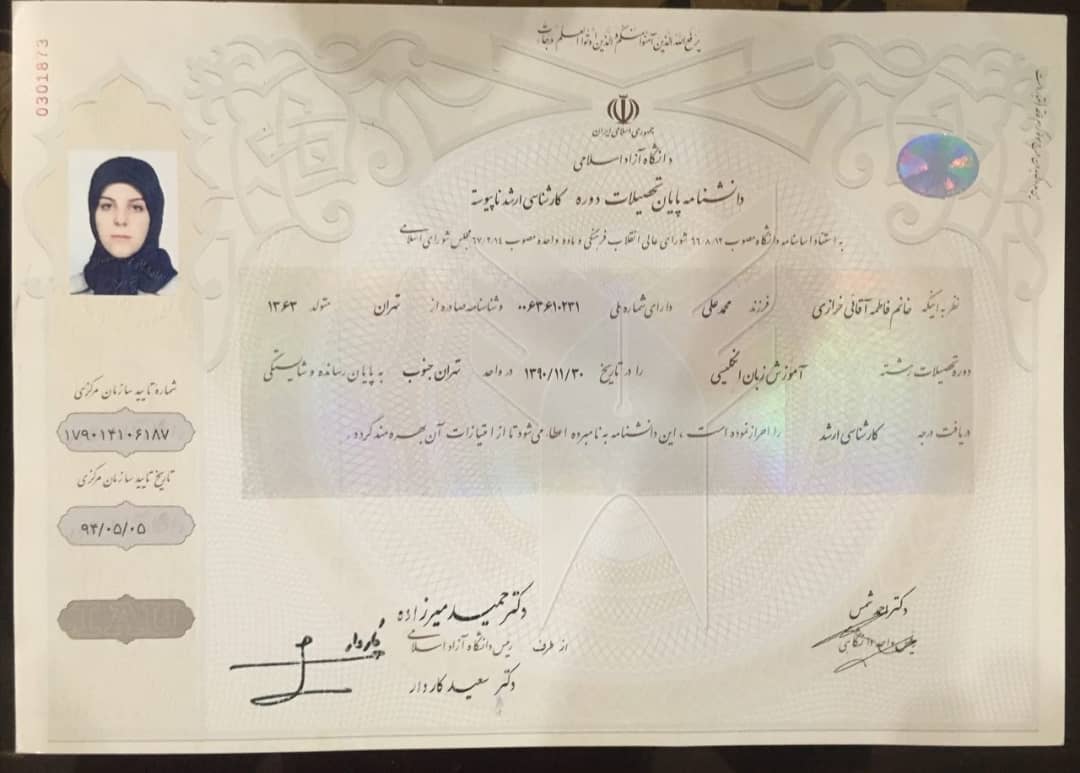 0301873
یرفع الله الذین آمنوا منکم والذین اوتوا العلم درجات
جمهوری اسلامی ایران
دانشگاه آزاد اسلامی
دانشنامه پایان تحصیلات دوره کارشناسی ارشد ناپیوسته
به استناد اساسنامه دانشگاه مصوب ۶۶/۸/۱۲ شورای عالی انقلاب فرهنگی و ماده واحده مصوب ۶۷/۲/۱۴ مجلس شورای اسلامی
نظر به اینکه خانم فاطمه آقائی خرازی فرزند محمدعلی دارای شماره ملی ۰۰۶۳۶۱۰۲۳۱ و شناسنامه صادره از تهران متولد ۱۳۶۳
دوره تحصیلات رشته آموزش زبان انگلیسی را در تاریخ ۱۳۹۰/۱۱/۳۰ در واحد تهران جنوب به پایان رسانده و شایستگی
دریافت درجه کارشناسی ارشد را احراز نموده است، این دانشنامه به نامبرده اعطا می‌شود تا از امتیازات آن بهره‌مند گردد.
شماره تایید سازمان مرکزی
۱۷۹۰۱۴۱۰۶۱۸۷
تاریخ تایید سازمان مرکزی
۹۴/۰۵/۰۵
دکتر حمید میرزاده
از طرف رئیس دانشگاه آزاد اسلامی
دکتر سعید کاردار
دکتر شمس
واحد دانشگاهی